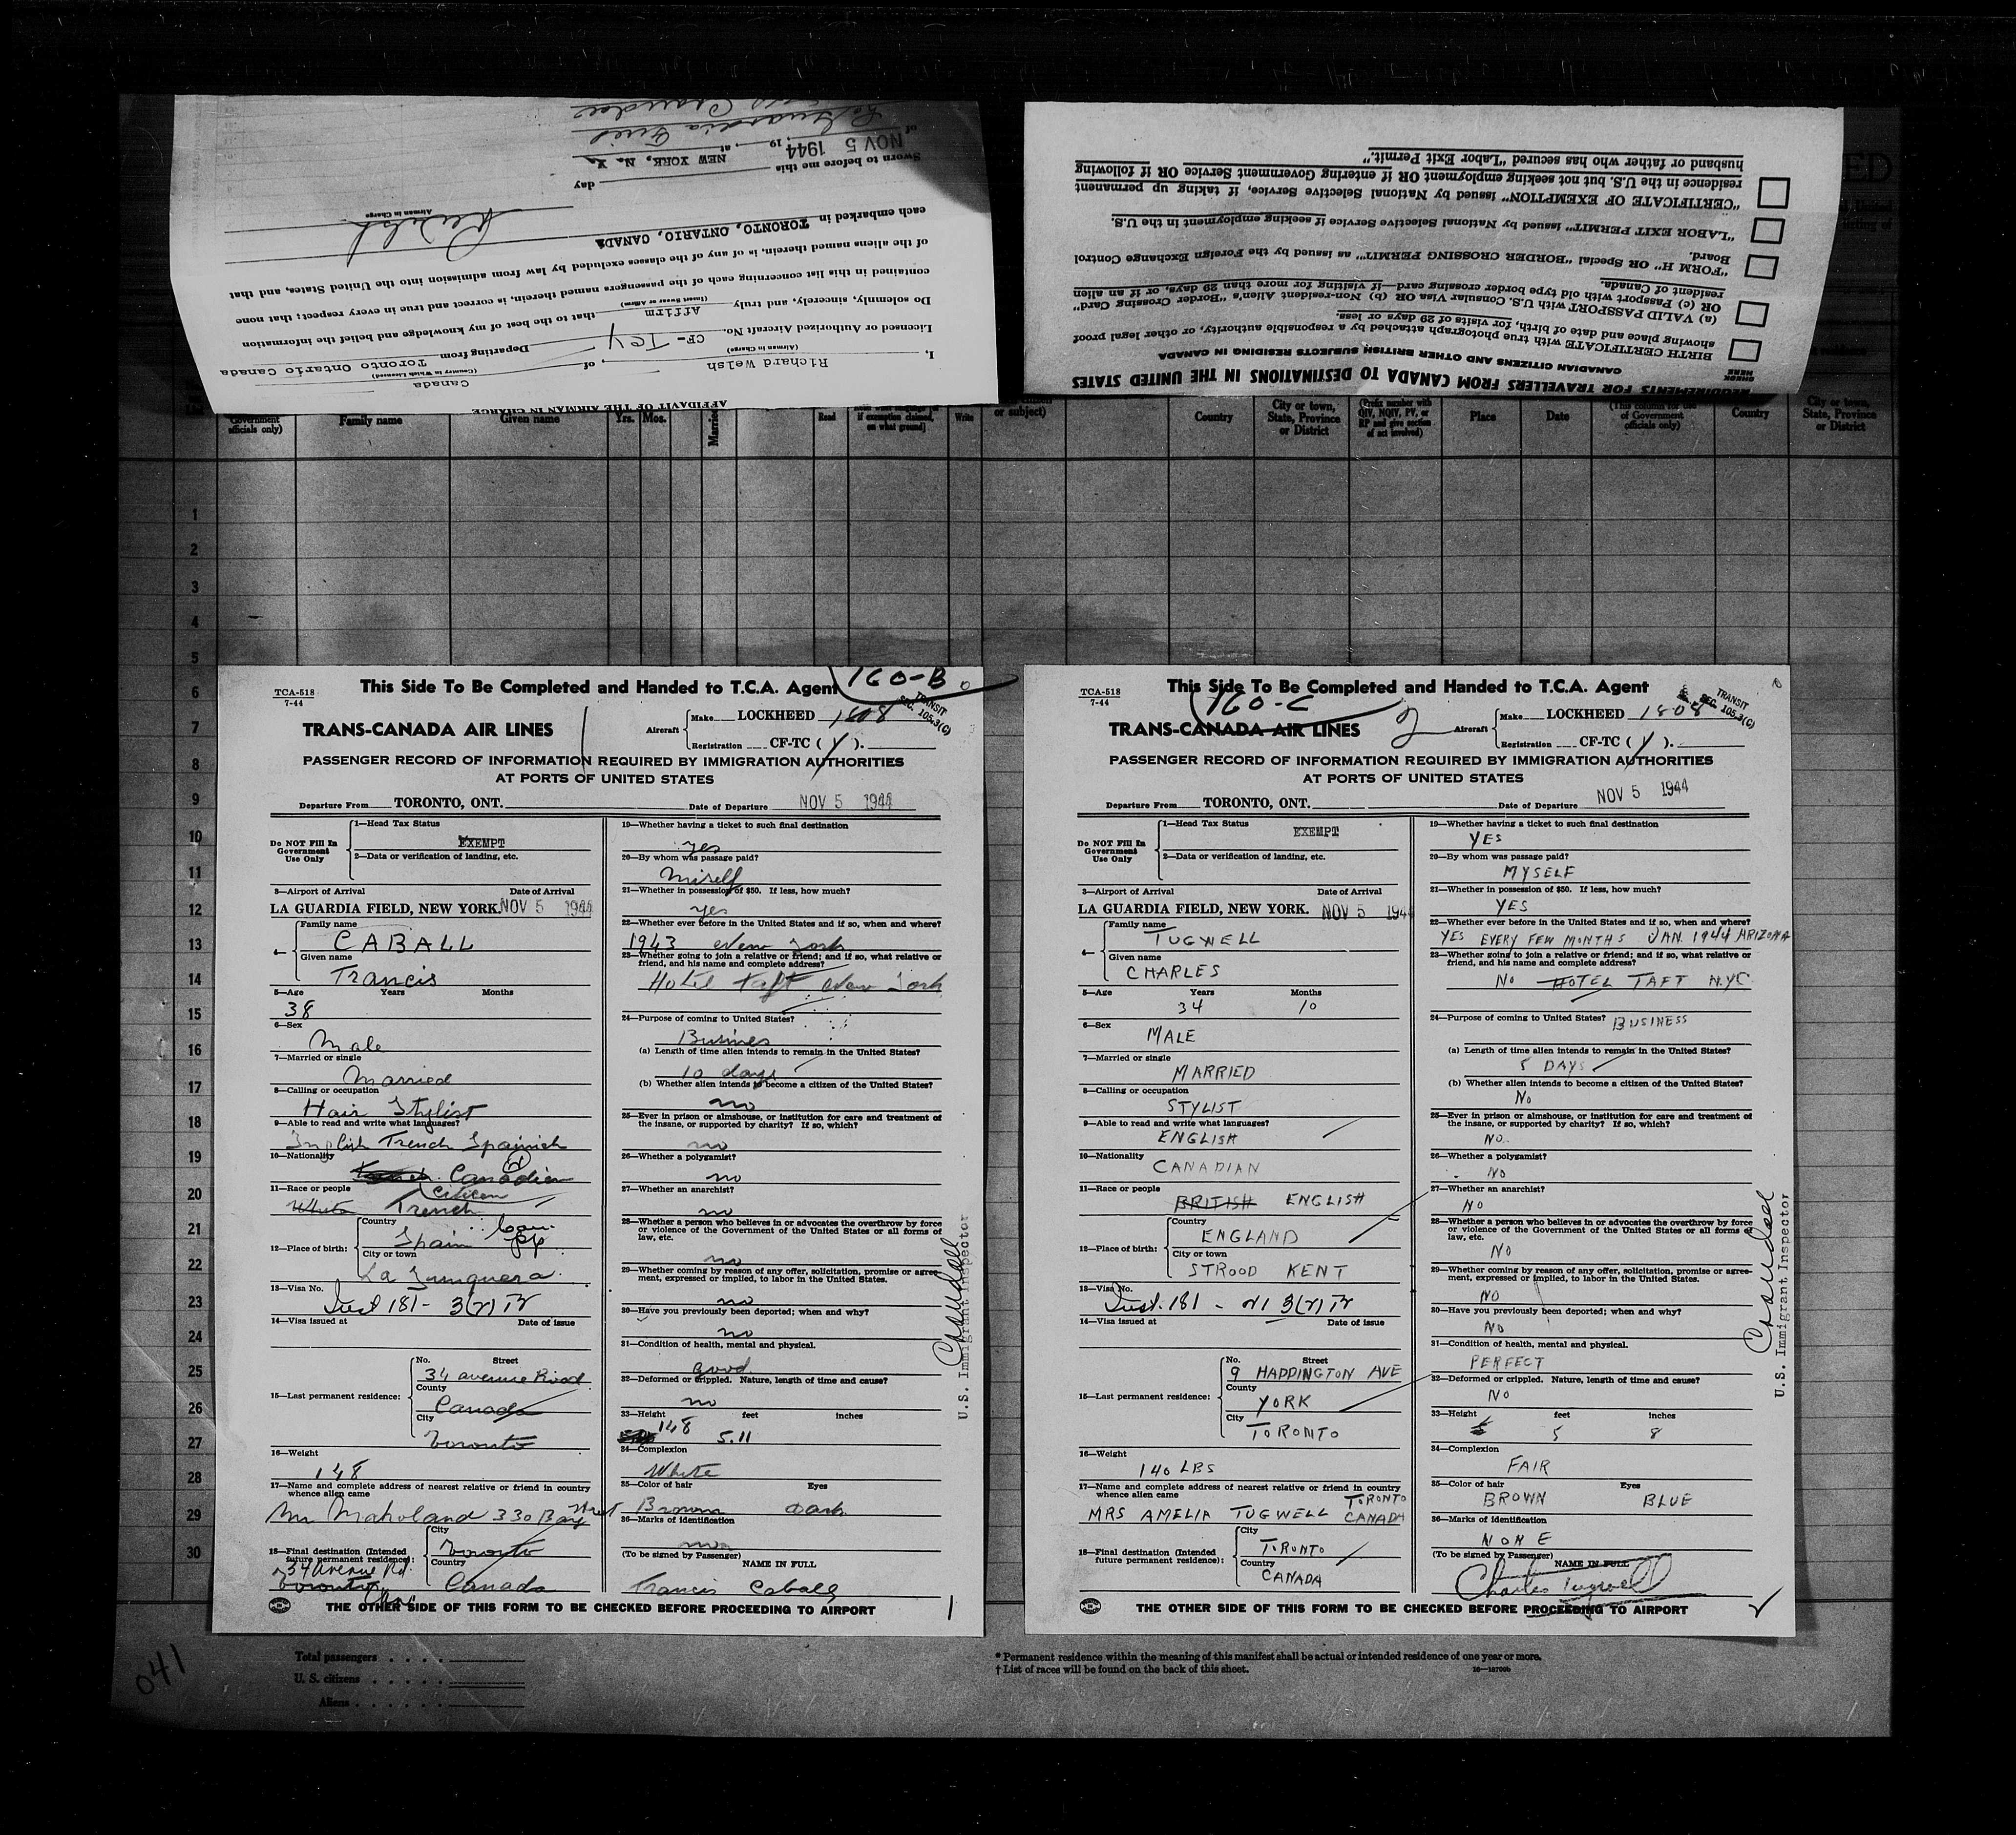 AFFIDAVIT OF THE AIRMAN IN CHARGE
I, Richard Welsh, of Canada
(Airman in Charge) (Country in Which Licensed)
Licensed or Authorized Aircraft No. CF-TCY Departing from Toronto Ontario Canada
Do solemnly, sincerely, and truly Affirm that to the best of my knowledge and belief the information
(Insert Swear or Affirm)
contained in this list concerning each of the passengers named therein, is correct and true in every respect; that none
of the aliens named therein, is of any of the classes excluded by law from admission into the United States, and that
each embarked in TORONTO, ONTARIO, CANADA
Airman in Charge
Sworn to before me this day
of NOV 5 1944, 19 , at NEW YORK, N. Y.
REQUIREMENTS FOR TRAVELLERS FROM CANADA TO DESTINATIONS IN THE UNITED STATES
CHECK HERE
CANADIAN CITIZENS AND OTHER BRITISH SUBJECTS RESIDING IN CANADA
BIRTH CERTIFICATE with true photograph attached by a responsible authority, or other legal proof
showing place and date of birth, for visits of 29 days or less.
(a) VALID PASSPORT with U.S. Consular Visa OR (b) Non-resident Alien's "Border Crossing Card"
OR (c) Passport with old type border crossing card—if visiting for more than 29 days, or if an alien
resident of Canada.
"FORM H" OR Special "BORDER CROSSING PERMIT" as issued by the Foreign Exchange Control
Board.
"LABOR EXIT PERMIT" issued by National Selective Service if seeking employment in the U.S.
"CERTIFICATE OF EXEMPTION" issued by National Selective Service, if taking up permanent
residence in the U.S. but not seeking employment OR if entering Government Service OR if following
husband or father who has secured "Labor Exit Permit."
Government officials only) Family name Given name Yrs. Mos. Married Read if exemption claimed, on what ground) Write or subject) Country City or town, State, Province or District (Prefix number with QIV, NQIV, PV, or RP and give section of act involved) Place Date (This column for use of Government officials only) Country City or town, State, Province or District
1
2
3
4
5
6
7
8
9
10
11
12
13
14
15
16
17
18
19
20
21
22
23
24
25
26
27
28
29
30
160-B
TCA-518
7-44
This Side To Be Completed and Handed to T.C.A. Agent
TRANSIT
SEC. 105.3(C)
TRANS-CANADA AIR LINES
Aircraft Make LOCKHEED 1808
Registration CF-TC ( Y ).
PASSENGER RECORD OF INFORMATION REQUIRED BY IMMIGRATION AUTHORITIES
AT PORTS OF UNITED STATES
Departure From TORONTO, ONT. Date of Departure NOV 5 1944
Do NOT Fill In Government Use Only
1—Head Tax Status
EXEMPT
2—Data or verification of landing, etc.
3—Airport of Arrival Date of Arrival
LA GUARDIA FIELD, NEW YORK. NOV 5 1944
4— Family name
CABALL
Given name
Francis
5—Age Years Months
38
6—Sex
Male
7—Married or single
Married
8—Calling or occupation
Hair Stylist
9—Able to read and write what languages?
English French Spainish
10—Nationality
Canadian
citizen
11—Race or people
White French
12—Place of birth: Country
Spain
City or town
La Junquera
13—Visa No.
Just 181 - 3(2) Tr
14—Visa issued at Date of issue
15—Last permanent residence: No. Street
34 avenue Road
County
Canada
City
Toronto
16—Weight
148
17—Name and complete address of nearest relative or friend in country
whence alien came
Mr Maholand 330 Bay Street
18—Final destination (Intended future permanent residence): City
Toronto
Country
Canada
34 Avenue Rd.
Toronto
19—Whether having a ticket to such final destination
yes
20—By whom was passage paid?
Miself
21—Whether in possession of $50. If less, how much?
yes
22—Whether ever before in the United States and if so, when and where?
1943 New York
23—Whether going to join a relative or friend; and if so, what relative or
friend, and his name and complete address?
Hotel Taft New York
24—Purpose of coming to United States?
Busines
(a) Length of time alien intends to remain in the United States?
10 days
(b) Whether alien intends to become a citizen of the United States?
no
25—Ever in prison or almshouse, or institution for care and treatment of
the insane, or supported by charity? If so, which?
no
26—Whether a polygamist?
no
27—Whether an anarchist?
no
28—Whether a person who believes in or advocates the overthrow by force
or violence of the Government of the United States or all forms of
law, etc.
no
29—Whether coming by reason of any offer, solicitation, promise or agree-
ment, expressed or implied, to labor in the United States.
no
30—Have you previously been deported; when and why?
no
31—Condition of health, mental and physical.
good
32—Deformed or crippled. Nature, length of time and cause?
no
33—Height feet inches
148 5.11
34—Complexion
White
35—Color of hair Eyes
Brown Dark
36—Marks of identification
(To be signed by Passenger) NAME IN FULL
Francis Caball
U.S. Immigrant Inspector
THE OTHER SIDE OF THIS FORM TO BE CHECKED BEFORE PROCEEDING TO AIRPORT
TCA-518
7-44
This Side To Be Completed and Handed to T.C.A. Agent
160-C
TRANSIT
SEC. 105.3(C)
TRANS-CANADA AIR LINES
2
Aircraft Make LOCKHEED 1808
Registration CF-TC ( Y ).
PASSENGER RECORD OF INFORMATION REQUIRED BY IMMIGRATION AUTHORITIES
AT PORTS OF UNITED STATES
Departure From TORONTO, ONT. Date of Departure NOV 5 1944
Do NOT Fill In Government Use Only
1—Head Tax Status
EXEMPT
2—Data or verification of landing, etc.
3—Airport of Arrival Date of Arrival
LA GUARDIA FIELD, NEW YORK. NOV 5 1944
4— Family name
TUGWELL
Given name
CHARLES
5—Age Years Months
34 10
6—Sex
MALE
7—Married or single
MARRIED
8—Calling or occupation
STYLIST
9—Able to read and write what languages?
ENGLISH
10—Nationality
CANADIAN
11—Race or people
BRITISH ENGLISH
12—Place of birth: Country
ENGLAND
City or town
STROOD KENT
13—Visa No.
Just. 181 - 3(2) Tr
14—Visa issued at Date of issue
15—Last permanent residence: No. Street
9 HADDINGTON AVE
County
YORK
City
TORONTO
16—Weight
140 LBS
17—Name and complete address of nearest relative or friend in country
whence alien came
MRS AMELIA TUGWELL TORONTO CANADA
18—Final destination (Intended future permanent residence): City
TORONTO
Country
CANADA
19—Whether having a ticket to such final destination
YES
20—By whom was passage paid?
MYSELF
21—Whether in possession of $50. If less, how much?
YES
22—Whether ever before in the United States and if so, when and where?
YES EVERY FEW MONTHS JAN. 1944 ARIZONA
23—Whether going to join a relative or friend; and if so, what relative or
friend, and his name and complete address?
NO HOTEL TAFT NYC
24—Purpose of coming to United States? BUSINESS
(a) Length of time alien intends to remain in the United States?
5 DAYS
(b) Whether alien intends to become a citizen of the United States?
NO
25—Ever in prison or almshouse, or institution for care and treatment of
the insane, or supported by charity? If so, which?
NO.
26—Whether a polygamist?
NO
27—Whether an anarchist?
NO
28—Whether a person who believes in or advocates the overthrow by force
or violence of the Government of the United States or all forms of
law, etc.
NO
29—Whether coming by reason of any offer, solicitation, promise or agree-
ment, expressed or implied, to labor in the United States.
NO
30—Have you previously been deported; when and why?
NO
31—Condition of health, mental and physical.
PERFECT
32—Deformed or crippled. Nature, length of time and cause?
NO
33—Height feet inches
5 8
34—Complexion
FAIR
35—Color of hair Eyes
BROWN BLUE
36—Marks of identification
NONE
(To be signed by Passenger) NAME IN FULL
Charles Tugwell
U.S. Immigrant Inspector
THE OTHER SIDE OF THIS FORM TO BE CHECKED BEFORE PROCEEDING TO AIRPORT
041
Total passengers
U. S. citizens
Aliens
* Permanent residence within the meaning of this manifest shall be actual or intended residence of one year or more.
† List of races will be found on the back of this sheet.